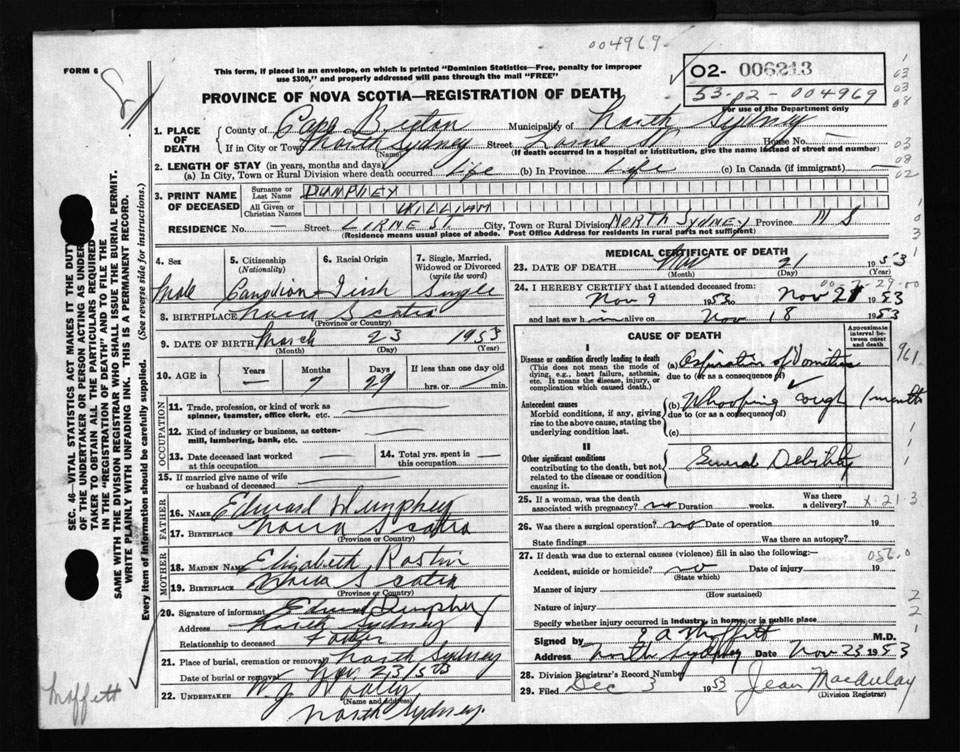 004969.
FORM 6
This form, if placed in an envelope, on which is printed "Dominion Statistics—Free, penalty for improper
use $300," and properly addressed will pass through the mail "FREE"
02- 006213
53-02-004969
For use of the Department only
PROVINCE OF NOVA SCOTIA—REGISTRATION OF DEATH
1. PLACE OF DEATH
County of Cape Breton Municipality of North Sydney
If in City or Town North Sydney Street House No. —
(Name) (If death occurred in a hospital or institution, give the name instead of street and number)
2. LENGTH OF STAY (in years, months and days)
(a) In City, Town or Rural Division where death occurred life (b) In Province Life (c) In Canada (if immigrant) —
3. PRINT NAME OF DECEASED
Surname or Last Name DUMPHEY
All Given or Christian Names WILLIAM
RESIDENCE No. — Street City, Town or Rural Division NORTH SYDNEY Province N S
(Residence means usual place of abode. Post Office Address for residents in rural parts not sufficient)
4. Sex Male
5. Citizenship (Nationality) Canadian
6. Racial Origin Irish
7. Single, Married, Widowed or Divorced (write the word) Single
8. BIRTHPLACE Nova Scotia
(Province or Country)
9. DATE OF BIRTH March 23 1953
(Month) (Day) (Year)
10. AGE in Years — Months 7 Days 29 If less than one day old hrs. or min.
OCCUPATION
11. Trade, profession, or kind of work as spinner, teamster, office clerk, etc.
12. Kind of industry or business, as cotton-mill, lumbering, bank, etc.
13. Date deceased last worked at this occupation —
14. Total yrs. spent in this occupation —
15. If married give name of wife or husband of deceased
FATHER
16. NAME Edward Dumphey
17. BIRTHPLACE Nova Scotia
(Province or Country)
MOTHER
18. MAIDEN NAME Elizabeth
19. BIRTHPLACE Nova Scotia
(Province or Country)
20. Signature of informant Edward Dumphey
Address North Sydney
Relationship to deceased Father
21. Place of burial, cremation or removal North Sydney
Date of burial or removal Nov 23/53
22. UNDERTAKER W J Dooley
(Name and address)
North Sydney.
MEDICAL CERTIFICATE OF DEATH
23. DATE OF DEATH Nov 21 1953
(Month) (Day) (Year)
24. I HEREBY CERTIFY that I attended deceased from:
Nov 9 1953 to Nov 21 1953
and last saw h im alive on Nov 18 1953
CAUSE OF DEATH
Approximate interval between onset and death
I
Disease or condition directly leading to death
(This does not mean the mode of dying, e.g., heart failure, asthenia, etc. It means the disease, injury, or complication which caused death.)
(a) Aspiration of Vomitus
due to (or as a consequence of)
Antecedent causes
Morbid conditions, if any, giving rise to the above cause, stating the underlying condition last.
(b) Whooping cough 1 month
due to (or as a consequence of)
(c)
II
Other significant conditions
contributing to the death, but not related to the disease or condition causing it.
General Debility
25. If a woman, was the death associated with pregnancy? no Duration weeks. Was there a delivery?
26. Was there a surgical operation? no Date of operation 19
State findings Was there an autopsy?
27. If death was due to external causes (violence) fill in also the following:—
Accident, suicide or homicide? no Date of injury 19
(State which)
Manner of injury
(How sustained)
Nature of injury
Specify whether injury occurred in industry, in home, or in public place
Signed by E A Moffett M.D.
Address North Sydney Date Nov 23 1953
28. Division Registrar's Record Number
29. Filed Dec 3 1953 Jean Macaulay
(Division Registrar)
SEC. 46—VITAL STATISTICS ACT MAKES IT THE DUTY
OF THE UNDERTAKER OR PERSON ACTING AS UNDERTAKER TO OBTAIN ALL THE PARTICULARS REQUIRED
IN THE "REGISTRATION OF DEATH" AND TO FILE THE
SAME WITH THE DIVISION REGISTRAR WHO SHALL ISSUE THE BURIAL PERMIT.
WRITE PLAINLY WITH UNFADING INK. THIS IS A PERMANENT RECORD.
Every item of information should be carefully supplied. (See reverse side for instructions.)
Moffett